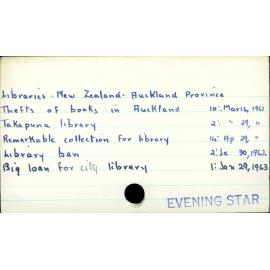 Libraries - New Zealand - Auckland Province
Thefts of books in Auckland 10: Mar 16, 1961
Takapuna library 2: " 29, "
Remarkable collection for library 14: Ap 29, "
Library ban 2: Je 30, 1962
Big loan for city library 1: Jan 29, 1963
EVENING STAR